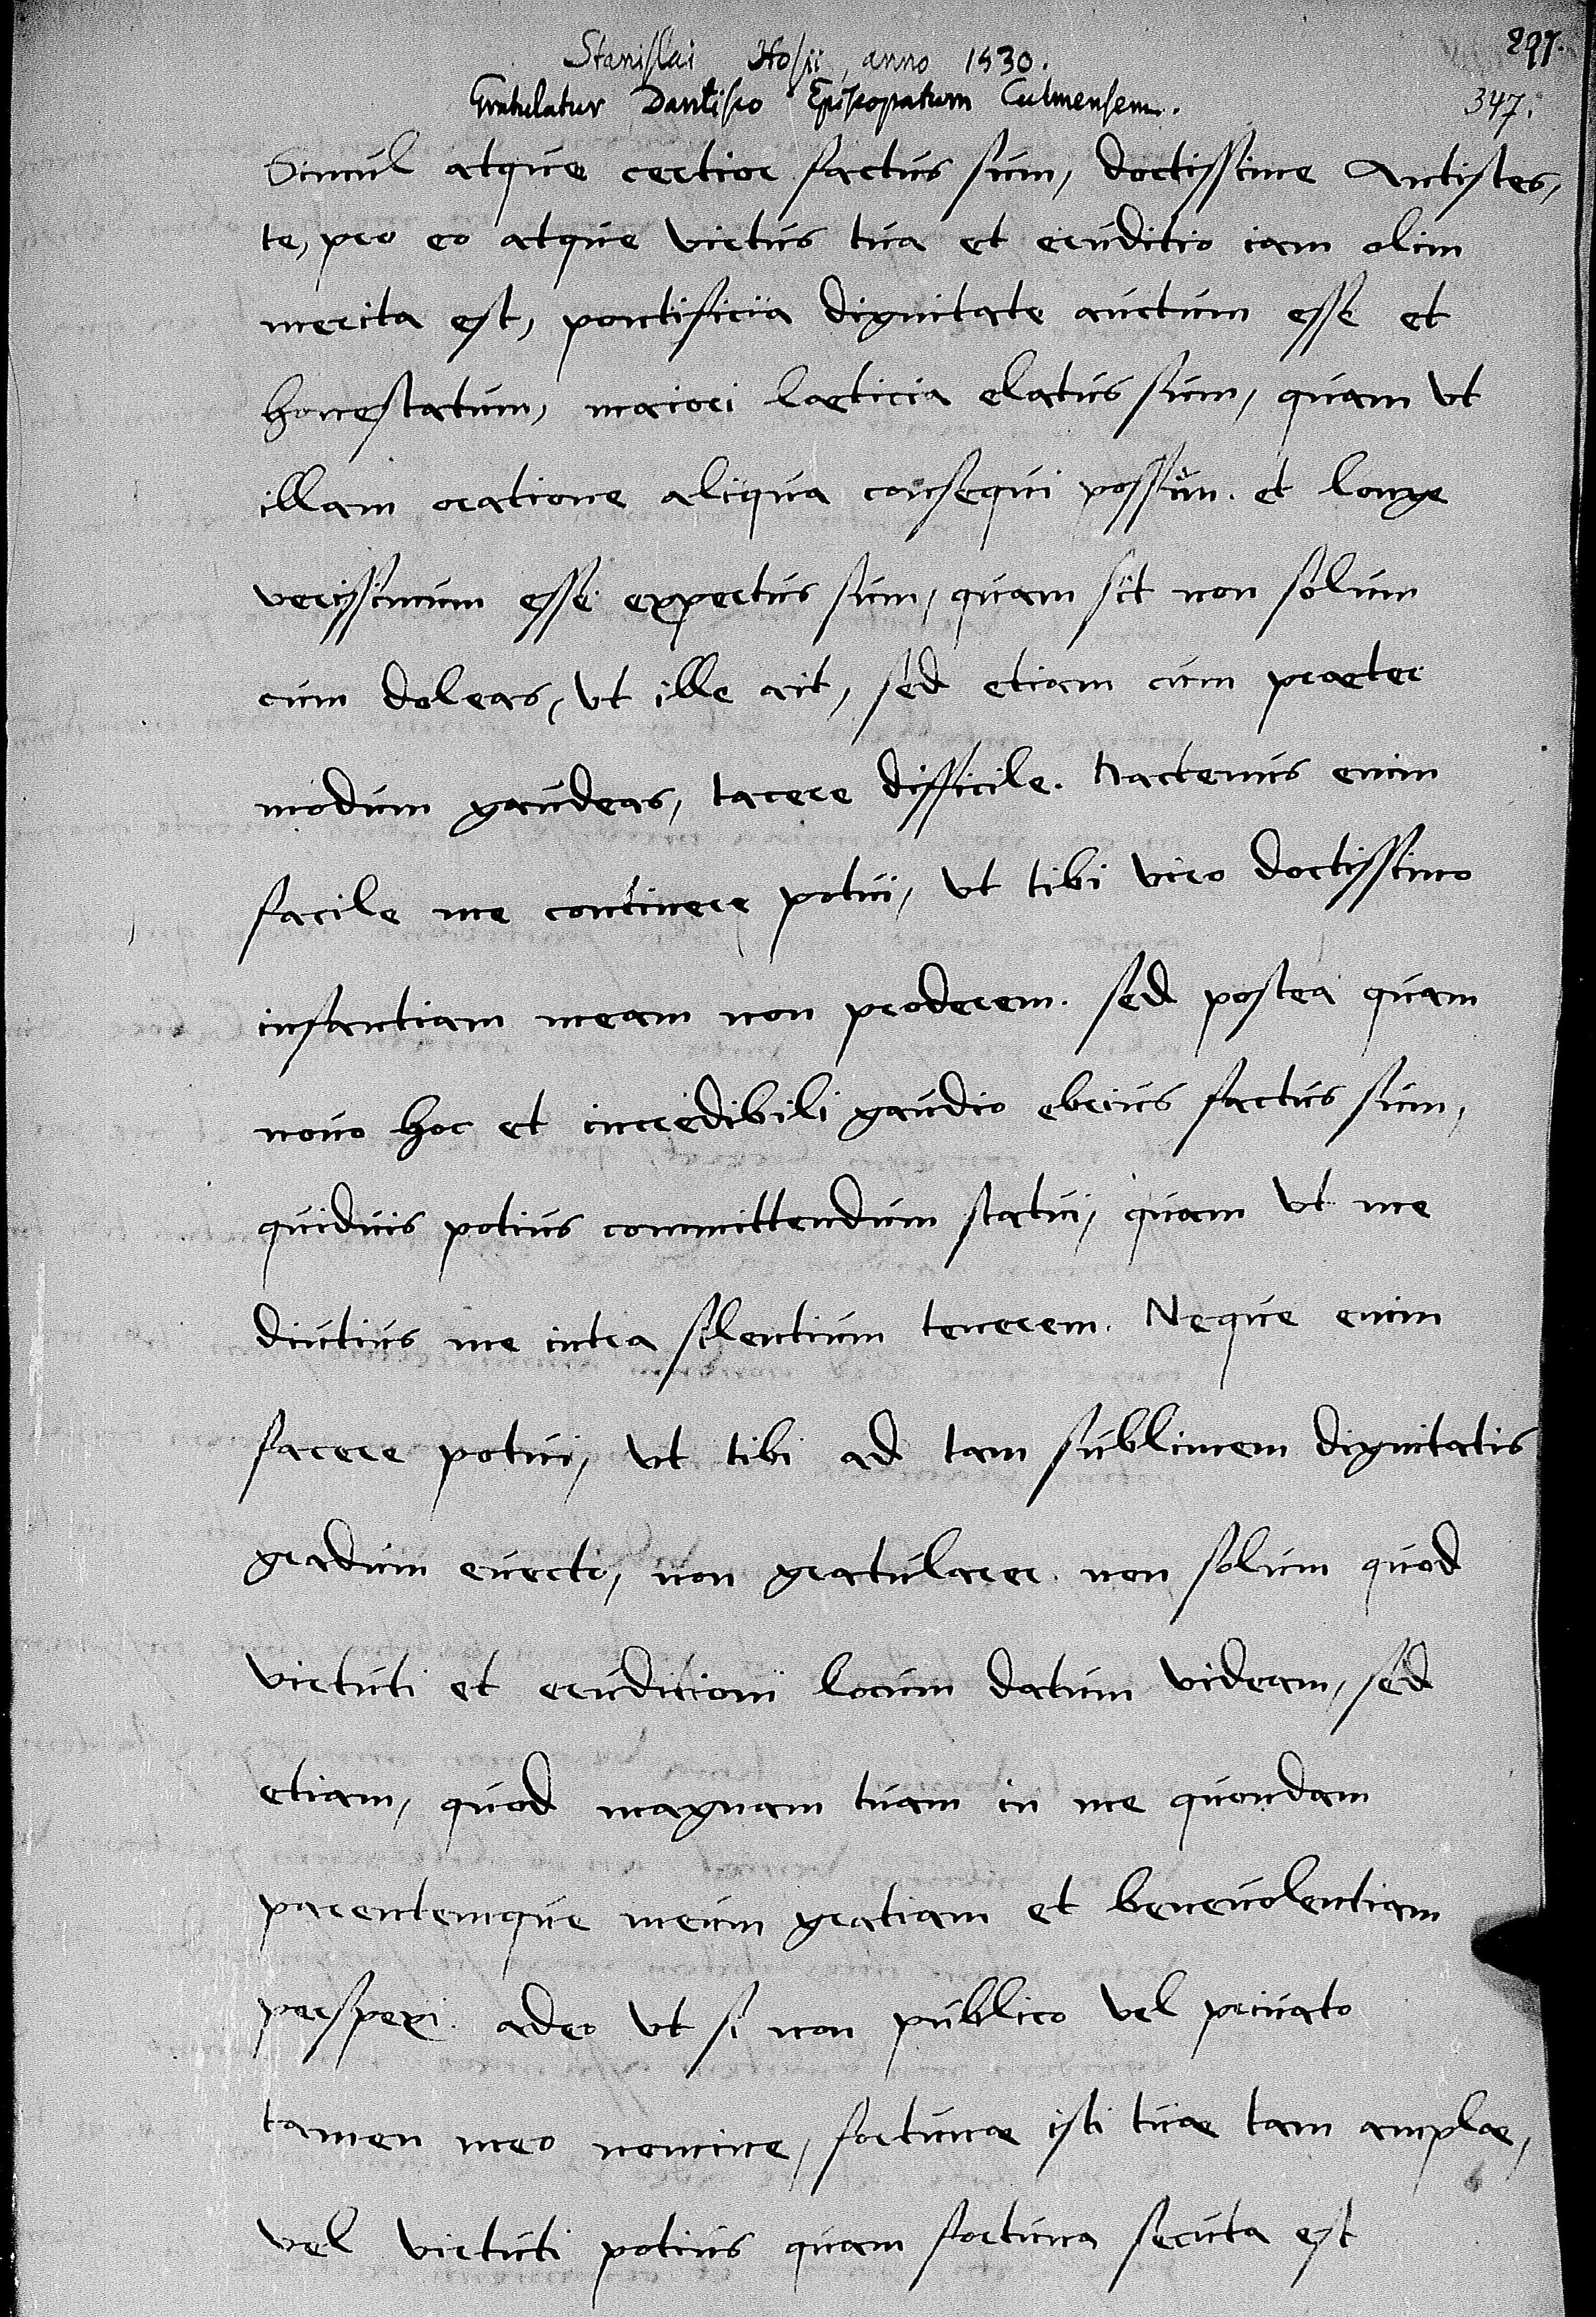 Stanislai Hosii, anno 1530. 297.
Gratulatur Dantisco Episcopatum Culmensem. 347.
Simul atque certior factus sum, doctissime Antistes,
te, pro eo atque virtus tua et eruditio iam olim
merita est, pontificia dignitate auctum esse et
honestatum, maiori laeticia elatus sum, quam ut
illam oratione aliqua consequi possum. et longe
verissimum esse expertus sum, quam sit non solum
cum doleas, ut ille ait, sed etiam cum praeter
modum gaudeas, tacere difficile. Hactenus enim
facile me continere potui, ut tibi viro doctissimo
infantiam meam non proderem. sed postea quam
novo hoc et incredibili gaudio ebrius factus sum,
quiduis potius committendum statui, quam ut me
diutius me intra silentium tenerem. Neque enim
facere potui, ut tibi ad tam sublimem dignitatis
gradum euecto, non gratularer. non solum quod
virtuti et eruditioni locum datum videam, sed
etiam, quod magnam tuam in me quondam
parentemque meum gratiam et beneuolentiam
perspexi. adeo ut si non publico vel priuato
tamen meo nomine, fortunae isti tuae tam amplae,
vel virtuti potius quam fortuna secuta est